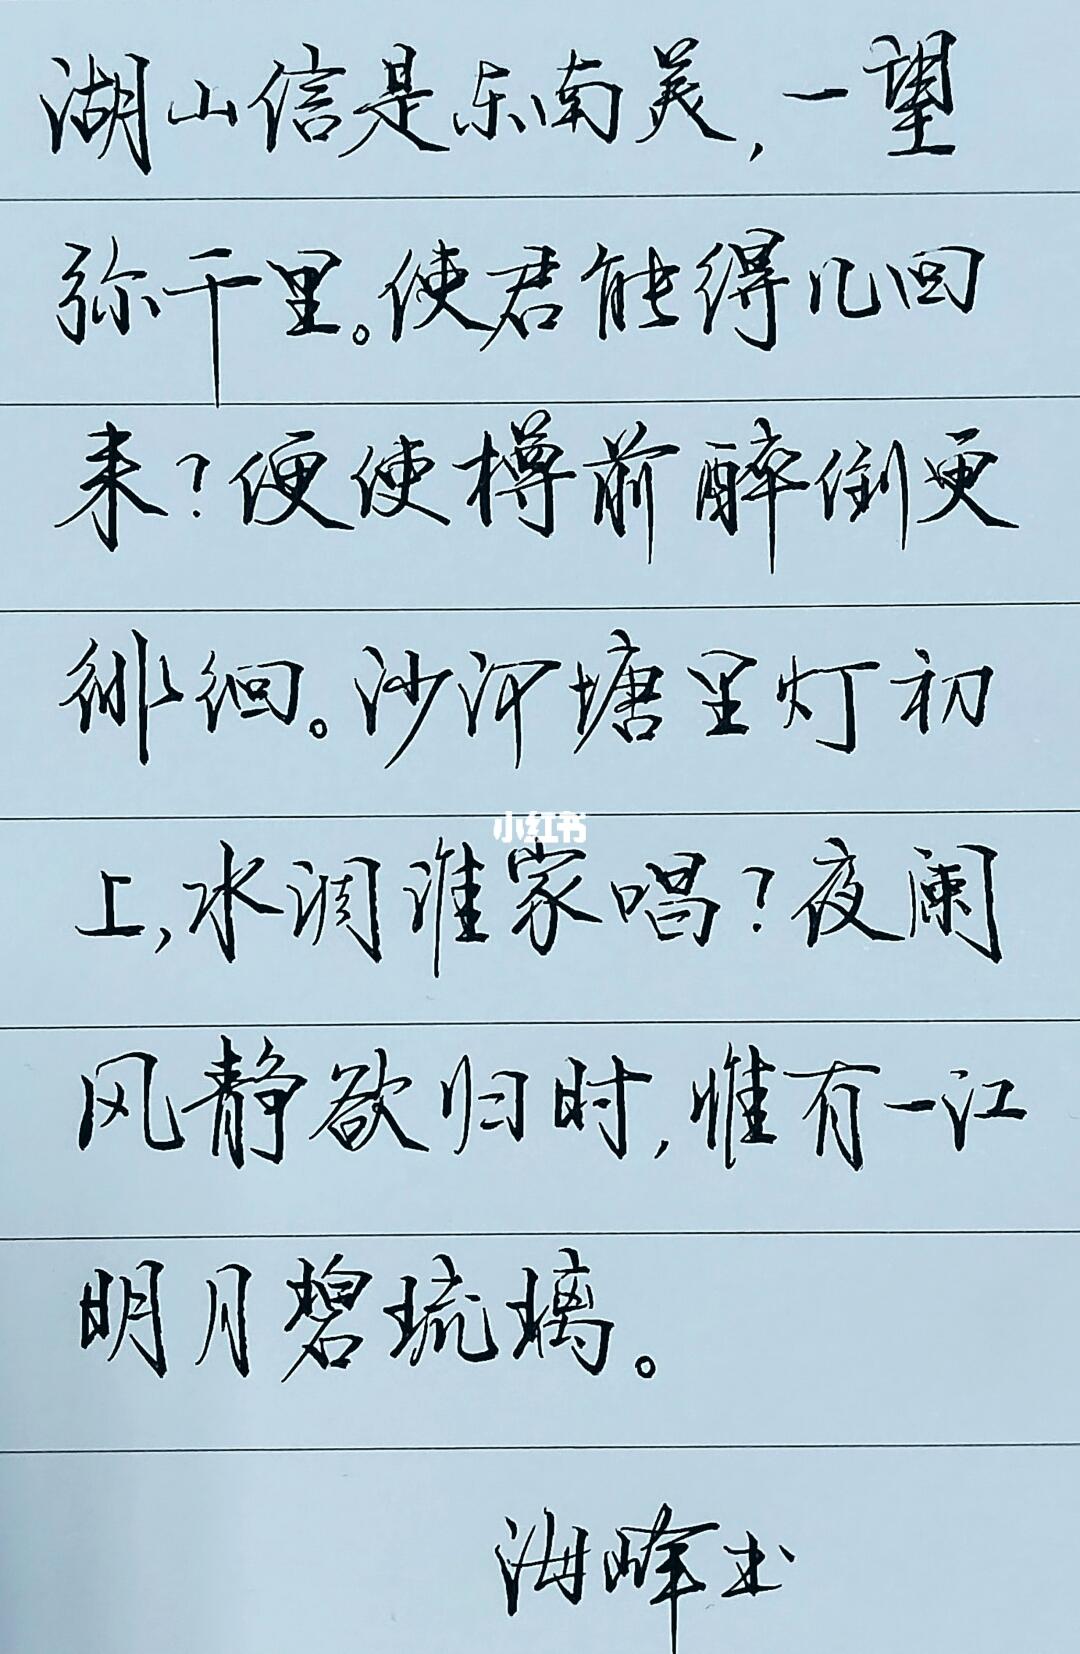 湖山信是东南美,一望
弥千里。使君能得几回
来?便使樽前醉倒更
徘徊。沙河塘里灯初
上,水调谁家唱?夜阑
风静欲归时,惟有一江
明月碧琉璃。
海峰书
小红书